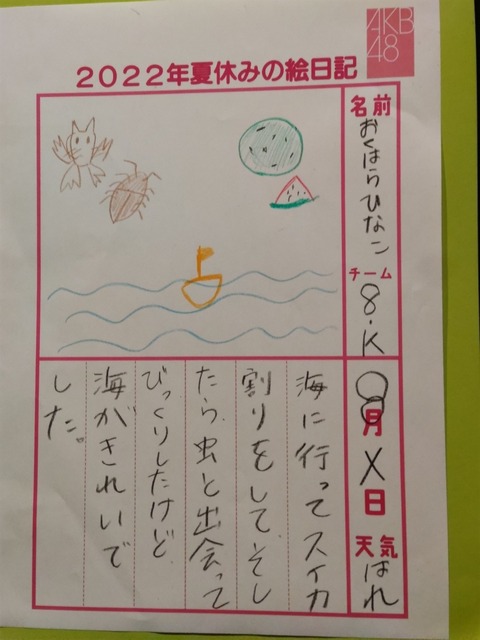 AKB
48
2022年夏休みの絵日記
名前
おくはらひなこ
チーム
8.K
8月X日
天気
はれ
海に行ってスイカ
割りをして、そし
たら、虫と出会って
びっくりしたけど
海がきれいで
した。